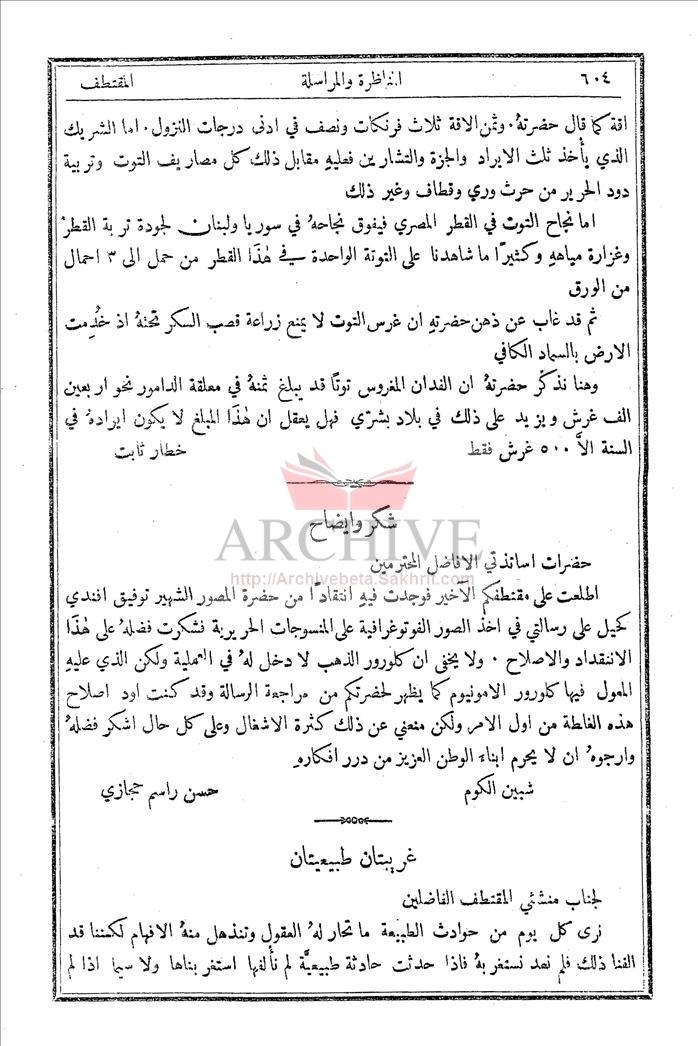 ٦٠٤ المناظرة والمراسلة المقتطف
اقة كما قال حضرتهُ. وثمن الاقة ثلاث فرنكات ونصف في ادنى درجات النزول. اما الشريك
الذي يأخذ ثلث الايراد والجزة والتشارين فعليهِ مقابل ذلك كل مصاريف التوت وتربية
دود الحرير من حرث وري وقطاف وغير ذلك
اما نجاح التوت في القطر المصري فيفوق نجاحهُ في سوريا ولبنان لجودة تربة القطر
وغزارة مياههِ وكثيرًا ما شاهدنا على التوتة الواحدة في هٰذا القطر من حمل الى ٣ احمال
من الورق
ثم قد غاب عن ذهن حضرتهِ ان غرس التوت لا يمنع زراعة قصب السكر تحتهُ اذ خُدِمت
الارض بالسماد الكافي
وهنا نذكّر حضرتهُ ان الفدان المغروس توتًا قد يبلغ ثمنهُ في معلقة الدامور نحو اربعين
الف غرش ويزيد على ذلك في بلاد بشرّي فهل يعقل ان هٰذا المبلغ لا يكون ايرادهُ في
السنة الاَّ ٥٠٠ غرش فقط خطار ثابت
شكر وايضاح
ARCHIVE
http://Archivebeta.Sakhrit.com
حضرات اساتذتي الافاضل المحترمين
اطلعت على مقتطفكم الاخير فوجدت فيهِ انتقادًا من حضرة المصور الشهير توفيق افندي
كحيل على رسالتي في اخذ الصور الفوتوغرافية على المنسوجات الحريرية فشكرت فضلهُ على هٰذا
الانتقاد والاصلاح. ولا يخفى ان كلورور الذهب لا دخل لهُ في العملية ولكن الذي عليهِ
المعول فيها كلورور الامونيوم كما يظهر لحضرتكم من مراجعة الرسالة وقد كنت اود اصلاح
هذه الغلطة من اول الامر ولكن منعني عن ذلك كثرة الاشغال وعلى كل حال اشكر فضلهُ
وارجوهُ ان لا يحرم ابناء الوطن العزيز من درر افكارهِ
شبين الكوم حسن راسم حجازي
غريبتان طبيعيتان
لجناب منشئي المقتطف الفاضلين
نرى كل يوم من حوادث الطبيعة ما تحار لهُ العقول وتنذهل منهُ الافهام لكننا قد
الفنا ذلك فلم نعد نستغربهُ فاذا حدثت حادثة طبيعيَّة لم نألفها استغربناها ولا سيما اذا لم